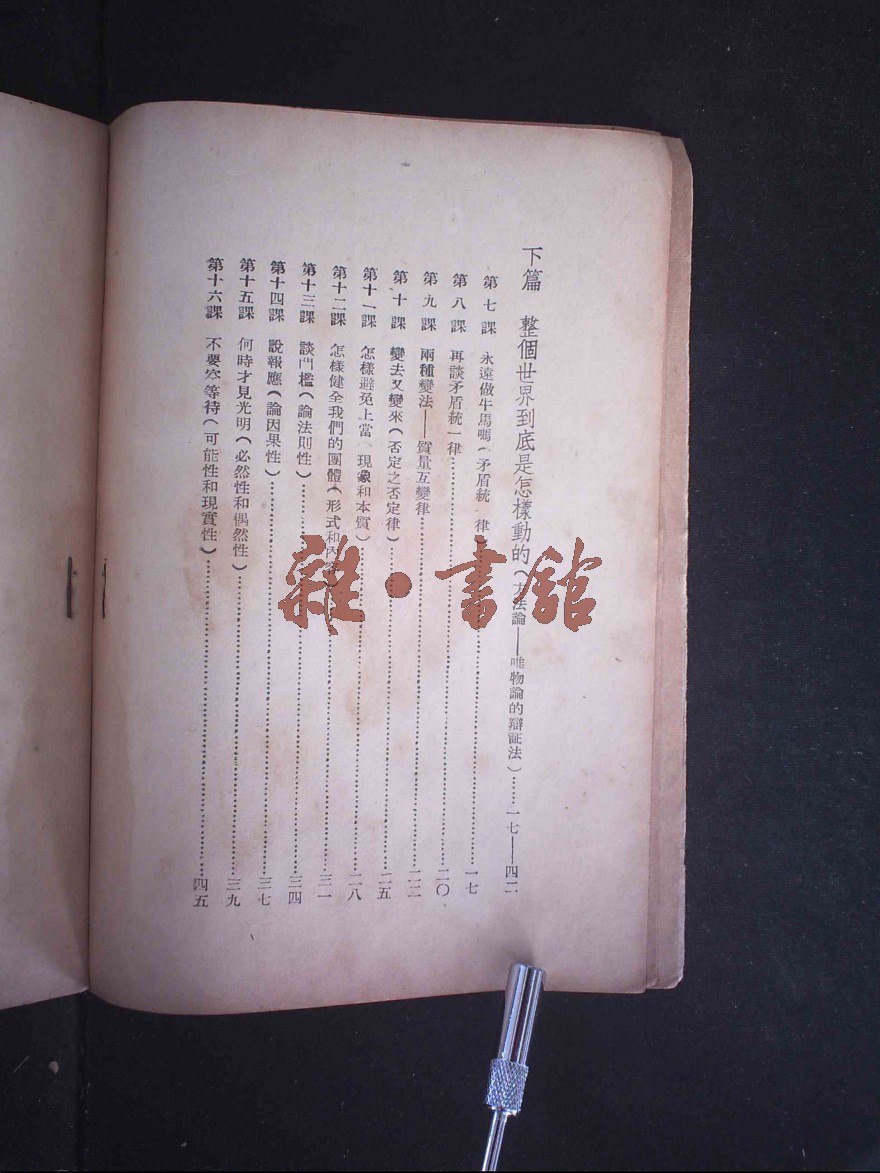 下篇 整個世界到底是怎樣動的(方法論——唯物論的辯証法)……一七——四二
第七課 永遠做牛馬嗎(矛盾統一律)……一七
第八課 再談矛盾統一律……二〇
第九課 兩種變法——質量互變律……二二
第十課 變去又變來(否定之否定律)……二五
第十一課 怎樣避免上當(現象和本質)……二八
第十二課 怎樣健全我們的團體(形式和內容)……三一
第十三課 談門檻(論法則性)……三四
第十四課 說報應(論因果性)……三七
第十五課 何時才見光明(必然性和偶然性)……三九
第十六課 不要空等待(可能性和現實性)……四五
雜·書館